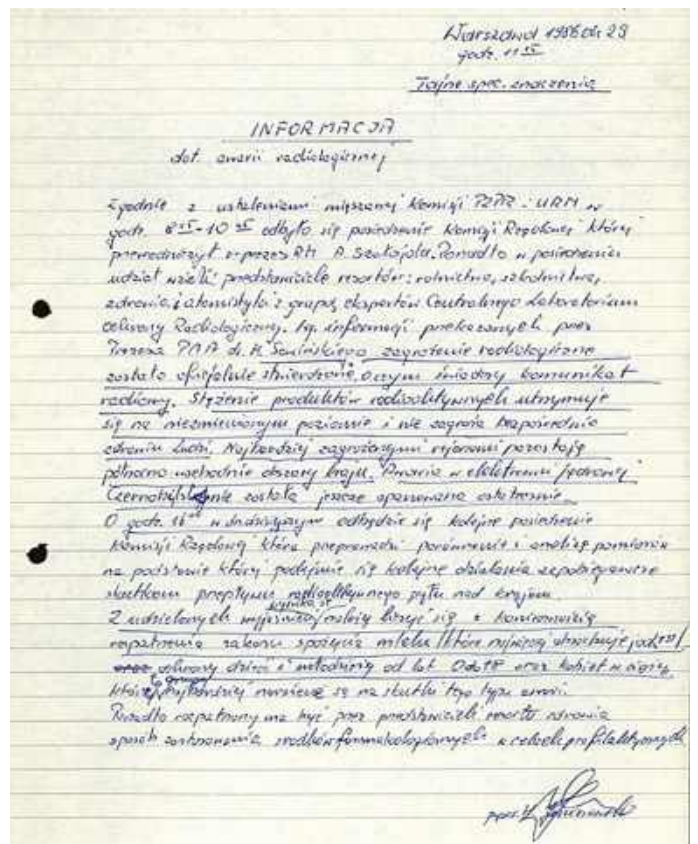 Warszawa 1986 04 29
godz. 11 15
Tajne spec. znaczenia
INFORMACJA
dot. awarii radiologicznej
Zgodnie z ustaleniami mieszanej Komisji PZPR i URM w
godz. 8 – 10 odbyło się posiedzenie Komisji Rządowej której
przewodniczył v-prezes RM A. Szałajda. Ponadto w posiedzeniu
udział wzięli przedstawiciele resortów: rolnictwa, szkolnictwa,
zdrowia i atomistyki z grupą ekspertów Centralnego Laboratorium
Ochrony Radiologicznej. Wg. informacji przekazanych przez
Prezesa PAA dr. M. Sowińskiego zagrożenie radiologiczne
zostało oficjalnie stwierdzone, o czym świadczy komunikat
radiowy. Stężenie produktów radioaktywnych utrzymuje
się na niezmienionym poziomie i nie zagraża bezpośrednio
zdrowiu ludzi. Najbardziej zagrożonymi rejonami pozostają
północno wschodnie obszary kraju. Awaria w elektrowni jądrowej
nie została jeszcze opanowana ostatecznie.
O godz. 16 w dniu dzisiejszym odbędzie się kolejne posiedzenie
Komisji Rządowej która przeprowadzi porównanie i analizę pomiarów
na podstawie który podejmie się kolejne działania zapobiegawcze
skutkom przepływu radioaktywnego pyłu nad krajem.
Z udzielonych wyjaśnień wynika że należy liczyć się z koniecznością
rozpatrzenia zakazu spożycia mleka /które najwięcej absorbuje jod 131/
oraz ochrony dzieci i młodzieży od lat 0 do 18 oraz kobiet w ciąży,
które to grupy najbardziej narażone są na skutki tego typu awarii.
Ponadto rozpatrzony ma być przez przedstawicieli resortu zdrowia
sposób zastosowania środków farmakologicznych w celach profilaktycznych